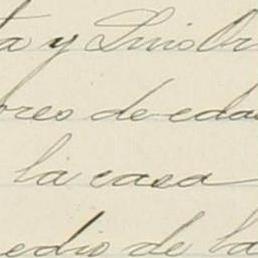 ta y Luis Or
ores de edad
la casa
edio de la